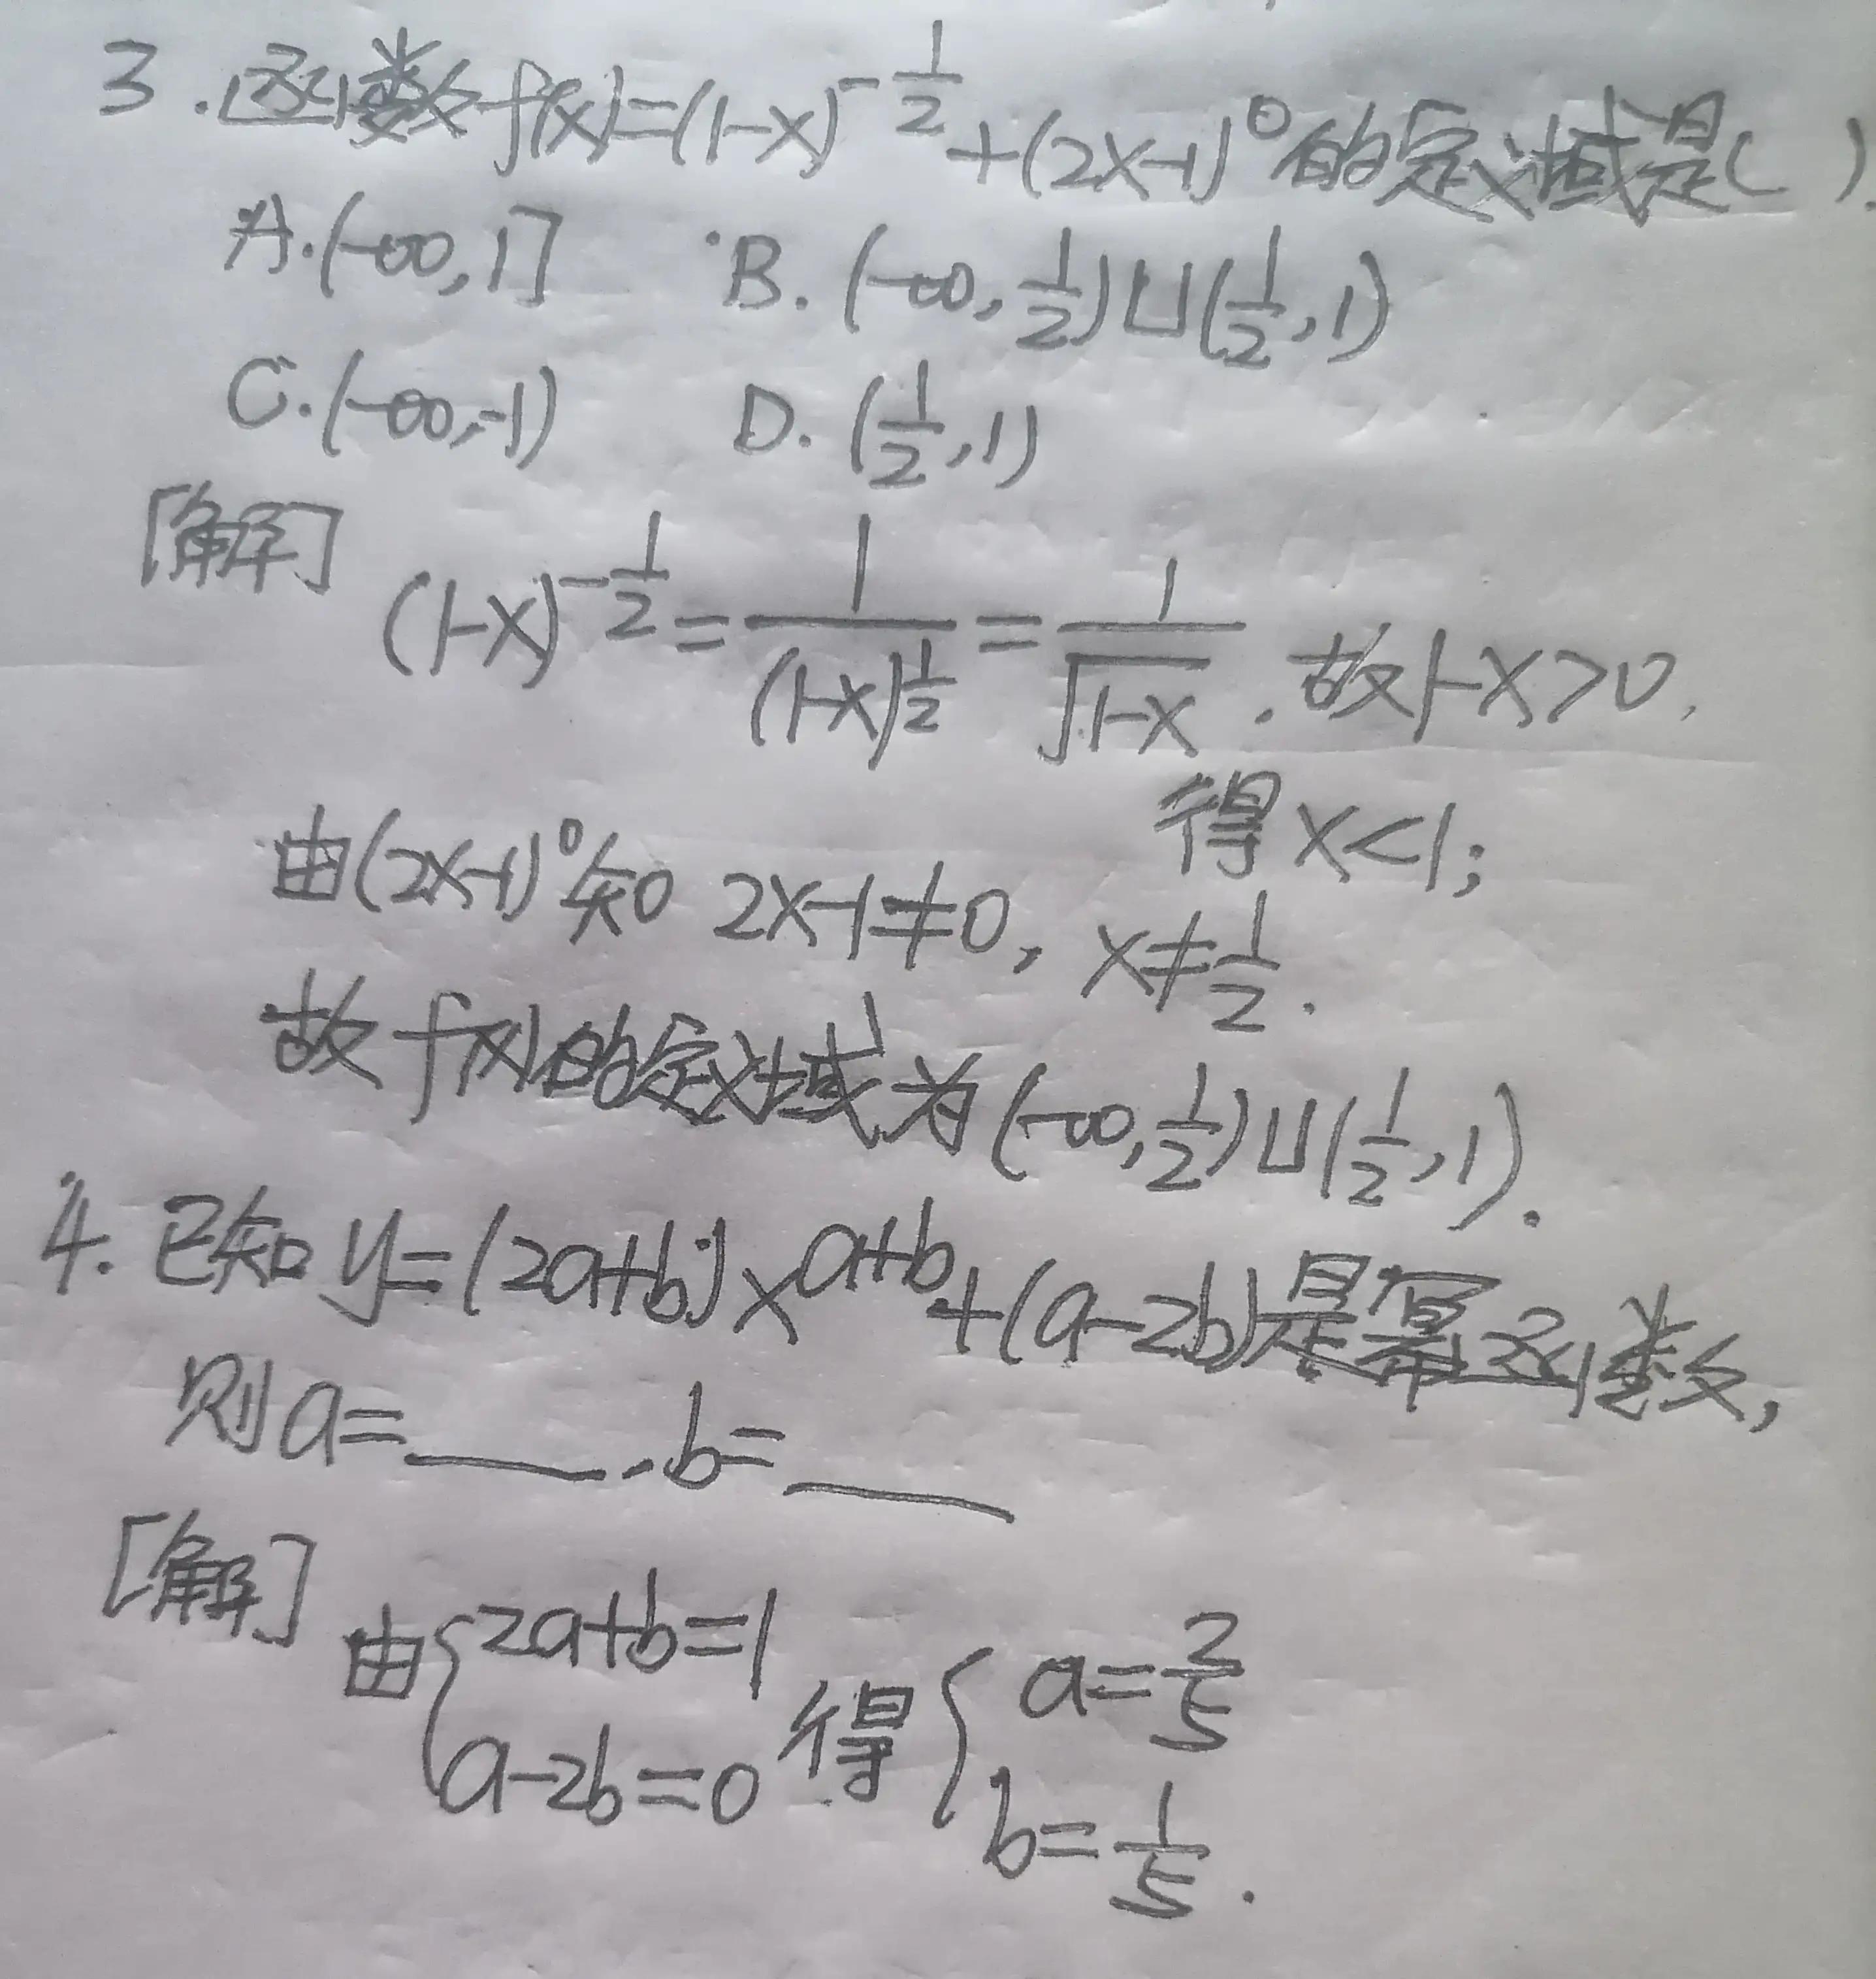 3.函数f(x)=(1-x)^{-\frac{1}{2}}+(2x-1)^0的定义域是( ).
A.(-∞,1] B.(-∞,\frac{1}{2})∪(\frac{1}{2},1)
C.(-∞,-1) D.(\frac{1}{2},1)
[解]
(1-x)^{-\frac{1}{2}}=\frac{1}{(1-x)^{\frac{1}{2}}}=\frac{1}{\sqrt{1-x}}.故1-x>0,
得x<1;
由(2x-1)^0知2x-1≠0,x≠\frac{1}{2}.
故f(x)的定义域为(-∞,\frac{1}{2})∪(\frac{1}{2},1).
4.已知y=(2a+b)x^{a+b}+(a-2b)是幂函数,
则a=____.b=____
[解]
由{2a+b=1 a-2b=0 得{a=\frac{2}{5} b=\frac{1}{5}.